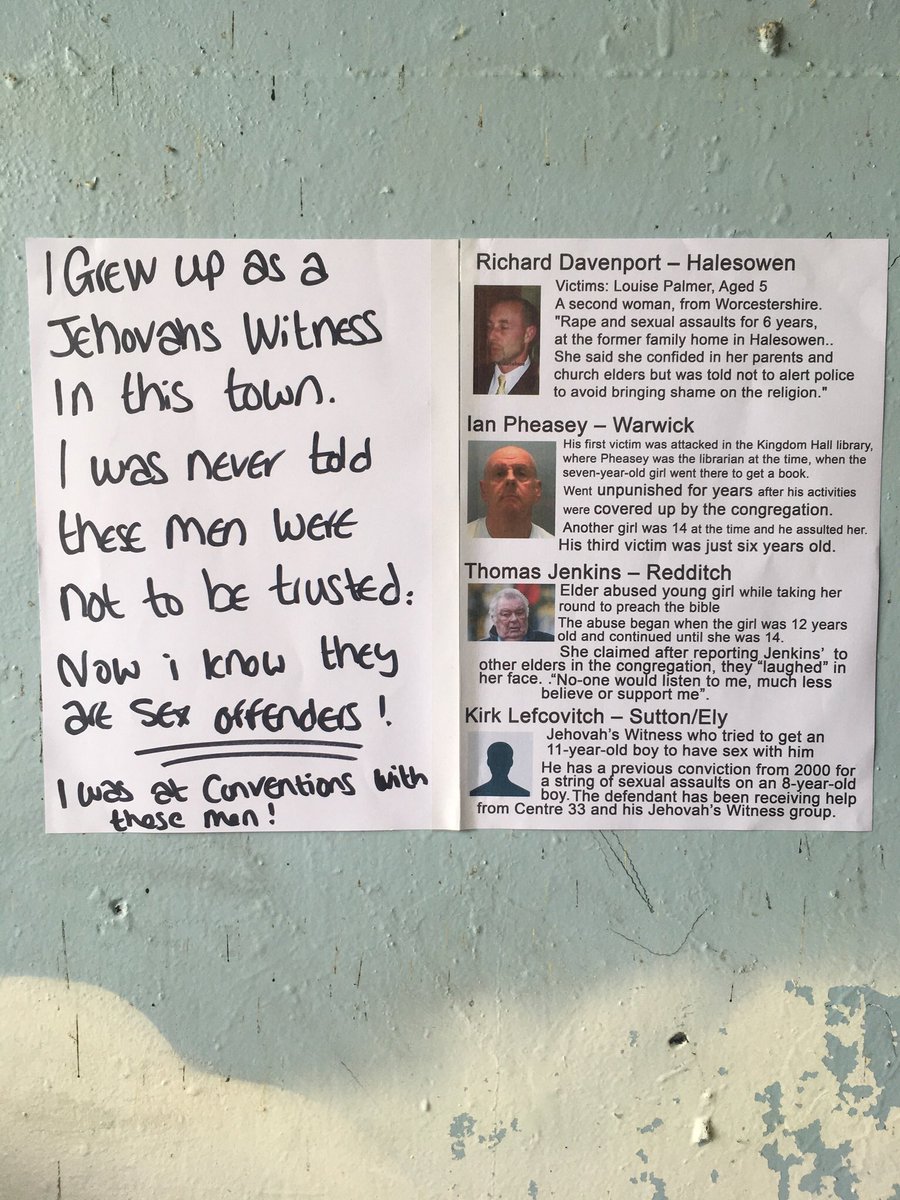 I Grew up as a
Jehovahs Witness
In this town.
I was never told
these men were
not to be trusted.
Now i know they
are sex offenders!
I was at Conventions with
these men!
Richard Davenport – Halesowen
Victims: Louise Palmer, Aged 5
A second woman, from Worcestershire.
"Rape and sexual assaults for 6 years,
at the former family home in Halesowen..
She said she confided in her parents and
church elders but was told not to alert police
to avoid bringing shame on the religion."
Ian Pheasey – Warwick
His first victim was attacked in the Kingdom Hall library,
where Pheasey was the librarian at the time, when the
seven-year-old girl went there to get a book.
Went unpunished for years after his activities
were covered up by the congregation.
Another girl was 14 at the time and he assulted her.
His third victim was just six years old.
Thomas Jenkins – Redditch
Elder abused young girl while taking her
round to preach the bible
The abuse began when the girl was 12 years
old and continued until she was 14.
She claimed after reporting Jenkins' to
other elders in the congregation, they "laughed" in
her face. ."No-one would listen to me, much less
believe or support me".
Kirk Lefcovitch – Sutton/Ely
Jehovah's Witness who tried to get an
11-year-old boy to have sex with him
He has a previous conviction from 2000 for
a string of sexual assaults on an 8-year-old
boy. The defendant has been receiving help
from Centre 33 and his Jehovah's Witness group.